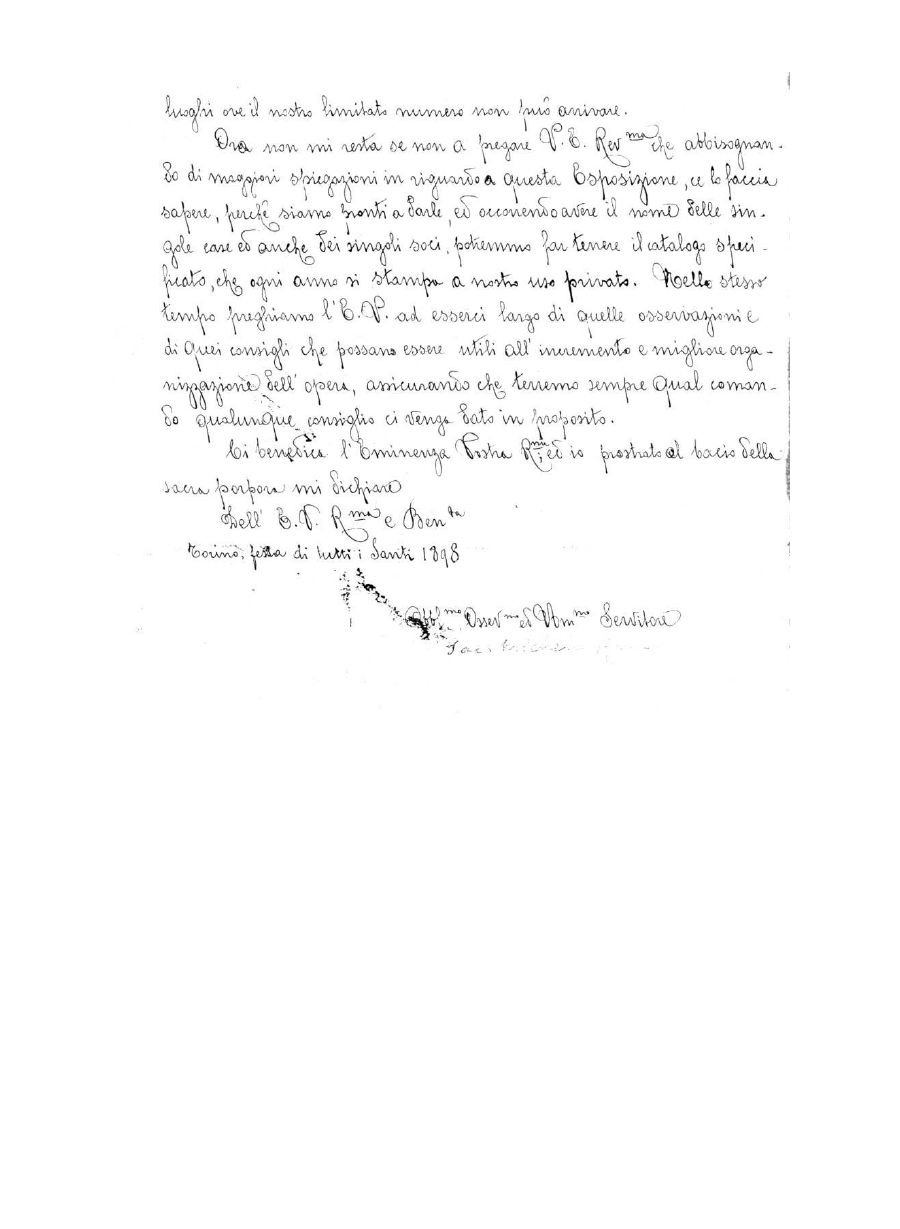 luoghi ove il nostro limitato numero non può arrivare.
Ora non mi resta se non a pregare V. E. Rev ma che abbisognan-
do di maggiori spiegazioni in riguardo a questa Esposizione, ce lo faccia
sapere, perchè siamo pronti a darle, ed occorrendo avere il nome delle sin-
gole case ed anche dei singoli soci, potremmo far tenere il catalogo speci-
ficato, che ogni anno si stampa a nostro uso privato. Nello stesso
tempo preghiamo l'E. V. ad esserci largo di quelle osservazioni e
di quei consigli che possano essere utili all'incremento e migliore orga-
nizzazione dell'opera, assicurando che terremo sempre qual coman-
do qualunque consiglio ci venga dato in proposito.
Ci benedica l'Eminenza Vostra R ma; ed io prostrato al bacio della
sacra porpora mi dichiaro
Dell' E. V. R ma e Ben ta
Torino, festa di tutti i Santi 1898
Obbl mo Osserv mo ed Um mo Servitore
Sac.